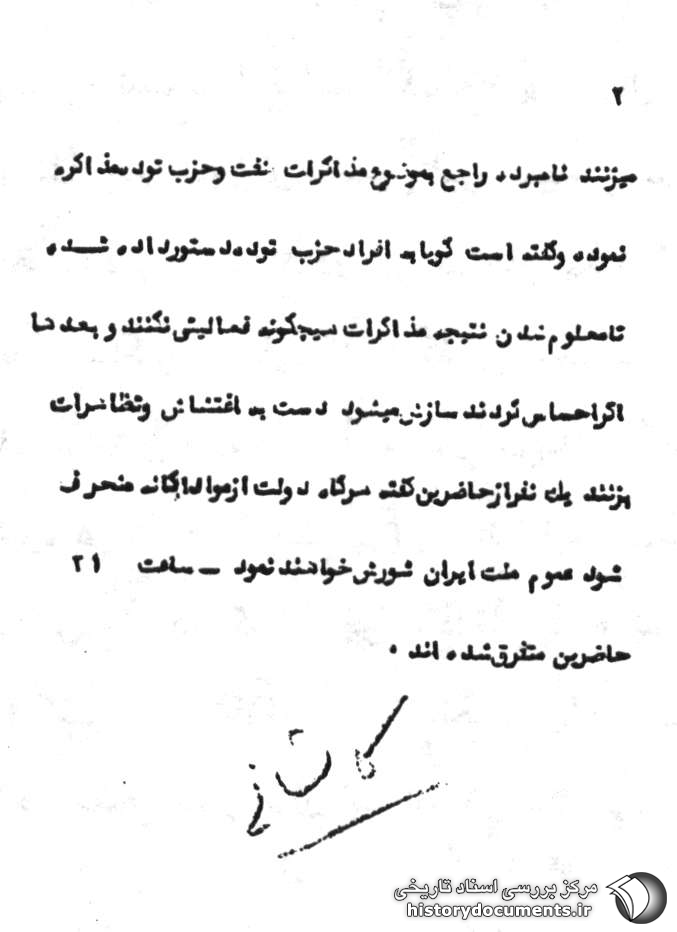 ۲
میزنند نامبرده راجع بموضوع مذاکرات نفت وحزب توده مذاکره
نموده وگفته است گویا به افراد حزب توده دستور داده شده
تامعلوم شدن نتیجه مذاکرات هیچگونه فعالیتی نکنند و بعدها
اگراحساس کردند سازش میشود دست به اغتشاش وتظاهرات
بزنند یك نفرازحاضرین گفته هرگاه دولت ازمواد منحرف
شود عموم ملت ایران شورش خواهند نمود – ساعت ۲۱
حاضرین متفرق شده اند .
مرکز بررسی اسناد تاریخی
historydocuments.ir